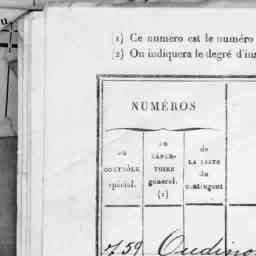 (1) Ce numéro est le numéro
(2) On indiquera le degré d'in
NUMÉROS
du
CONTRÔLE
spécial.
du
RÉPER-
TOIRE
général.
(1)
de
LA LISTE
du
contingent
759
Oudino